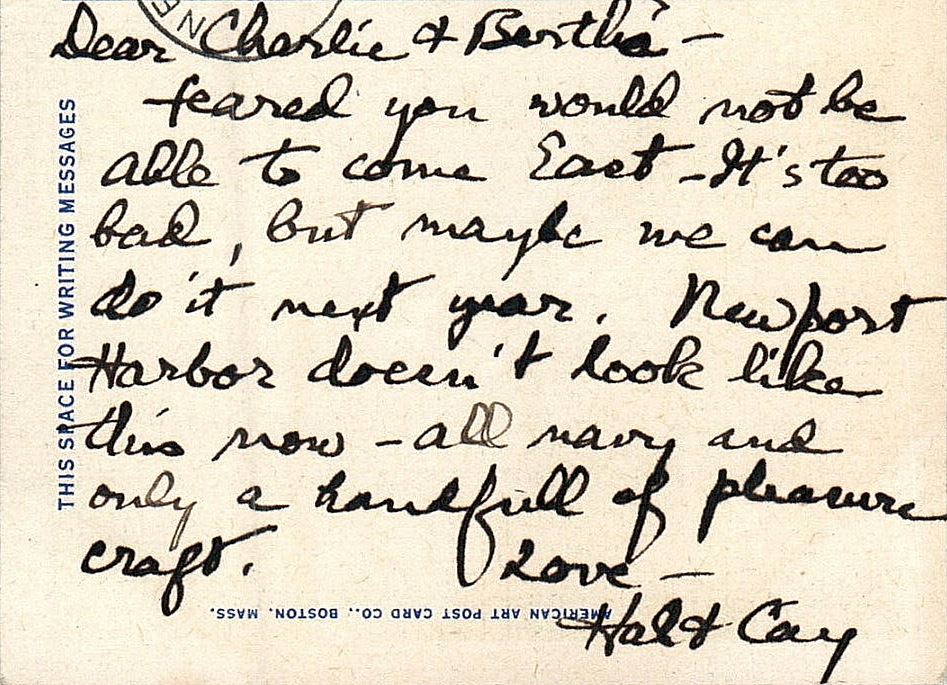 Dear Charlie & Bertha -
feared you would not be
able to come East - It's too
bad, but maybe we can
do it next year. Newport
Harbor doesn't look like
this now - all navy and
only a handfull of pleasure
craft. Love -
Hal & Cay
THIS SPACE FOR WRITING MESSAGES
AMERICAN ART POST CARD CO., BOSTON, MASS.